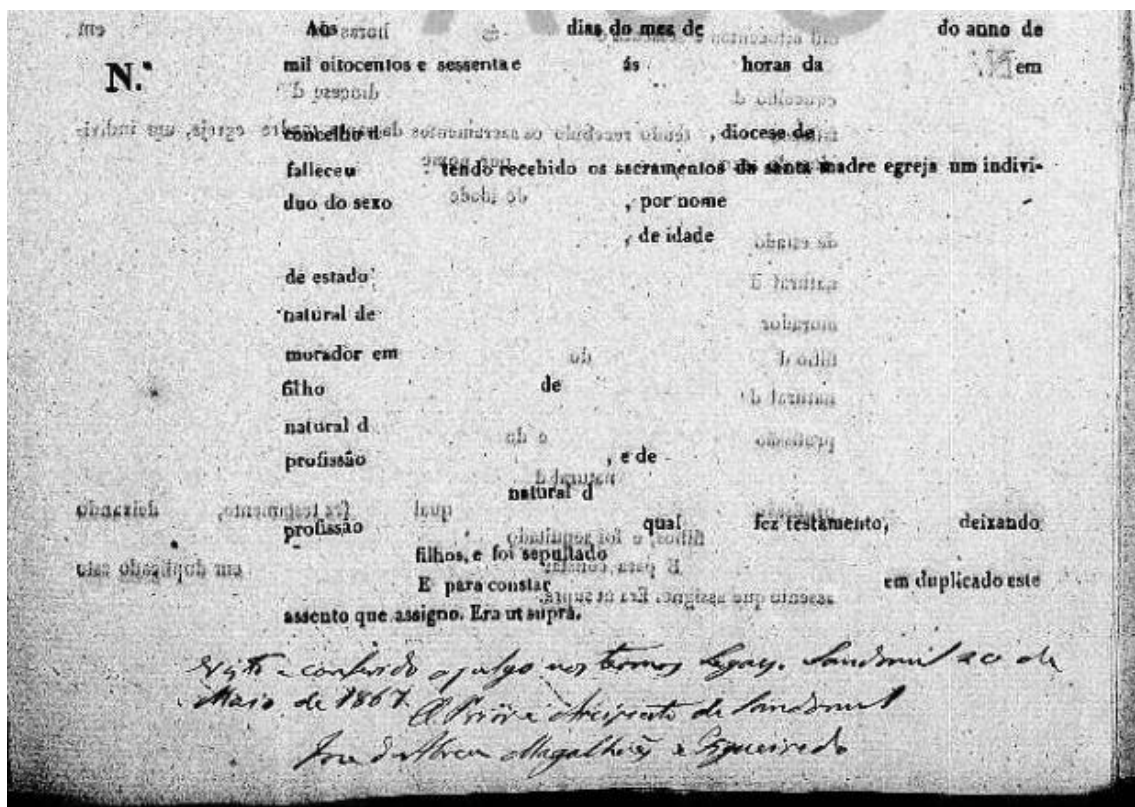 Aos dias do mez de do anno de
N.º mil oitocentos e sessenta e ás horas da em
concelho d , diocese de
falleceu tendo recebido os sacramentos da santa madre egreja um indivi-
duo do sexo , por nome
, de idade
de estado
natural de
morador em
filho de
natural d
profissão , e de
natural d
profissão qual fez testamento, deixando
filhos, e foi sepultado
E para constar em duplicado este
assento que assigno. Era ut supra.
e conferido o julgo nos termos legaes. Sandomil 20 de
Maio de 1867. O Prior e Arcipreste de Sandomil
José d'Abreu Magalhães e Figueiredo